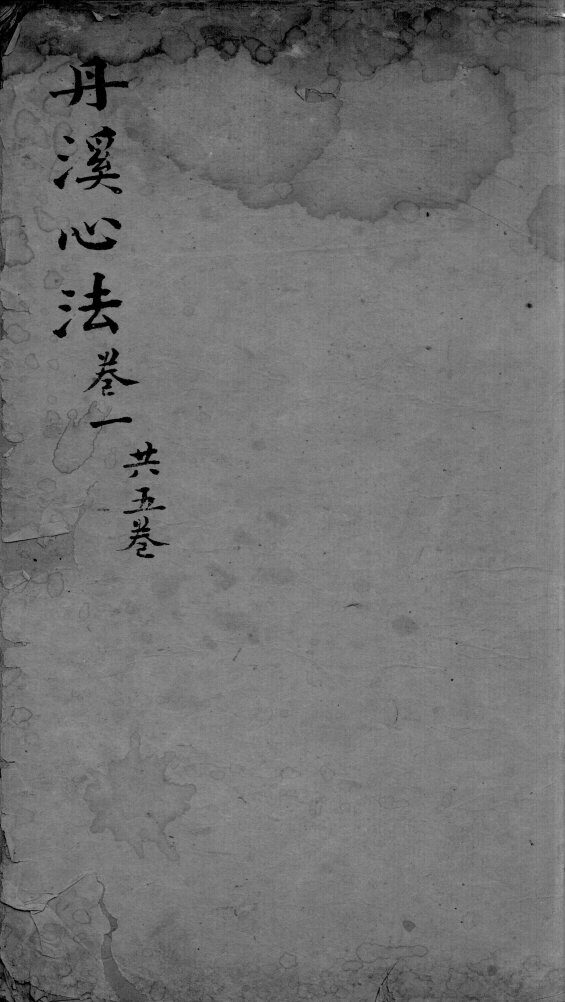 丹溪心法
卷一
共五卷